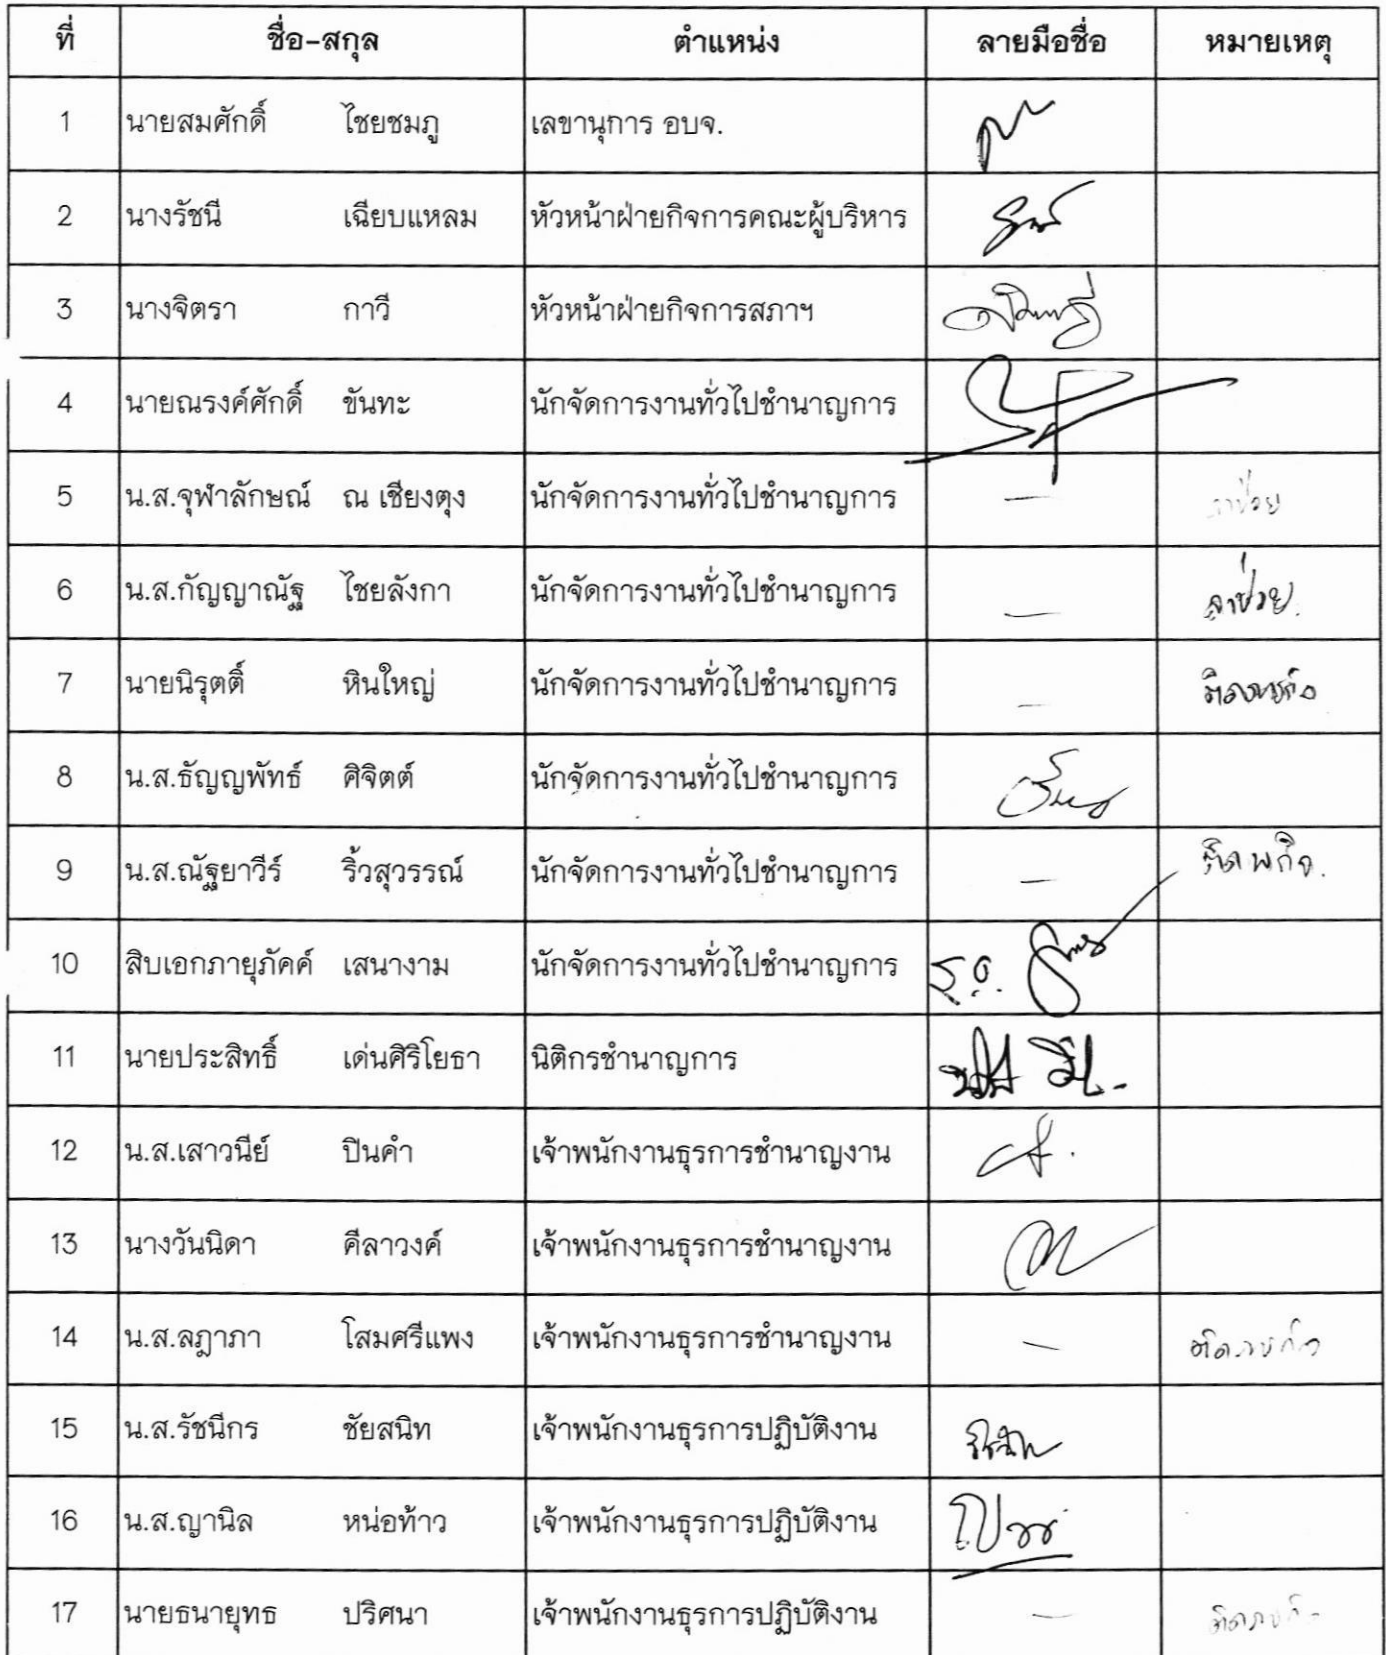 ที่ ชื่อ-สกุล ตำแหน่ง ลายมือชื่อ หมายเหตุ
1 นายสมศักดิ์ ไชยชมภู เลขานุการ อบจ.
2 นางรัชนี เฉียบแหลม หัวหน้าฝ่ายกิจการคณะผู้บริหาร
3 นางจิตรา กาวี หัวหน้าฝ่ายกิจการสภาฯ
4 นายณรงค์ศักดิ์ ขันทะ นักจัดการงานทั่วไปชำนาญการ
5 น.ส.จุฬาลักษณ์ ณ เชียงตุง นักจัดการงานทั่วไปชำนาญการ — ลาป่วย
6 น.ส.กัญญาณัฐ ไชยลังกา นักจัดการงานทั่วไปชำนาญการ — ลาป่วย
7 นายนิรุตติ์ หินใหญ่ นักจัดการงานทั่วไปชำนาญการ — ติดภารกิจ
8 น.ส.ธัญญพัทธ์ ศิจิตต์ นักจัดการงานทั่วไปชำนาญการ
9 น.ส.ณัฐยาวีร์ ริ้วสุวรรณ์ นักจัดการงานทั่วไปชำนาญการ —
10 สิบเอกภายุภัคค์ เสนางาม นักจัดการงานทั่วไปชำนาญการ
11 นายประสิทธิ์ เด่นศิริโยธา นิติกรชำนาญการ
12 น.ส.เสาวนีย์ ปินคำ เจ้าพนักงานธุรการชำนาญงาน
13 นางวันนิดา คีลาวงค์ เจ้าพนักงานธุรการชำนาญงาน
14 น.ส.ลฎาภา โสมศรีแพง เจ้าพนักงานธุรการชำนาญงาน — ติดภารกิจ
15 น.ส.รัชนีกร ชัยสนิท เจ้าพนักงานธุรการปฏิบัติงาน
16 น.ส.ญานิล หน่อท้าว เจ้าพนักงานธุรการปฏิบัติงาน
17 นายธนายุทธ ปริศนา เจ้าพนักงานธุรการปฏิบัติงาน — ติดภารกิจ